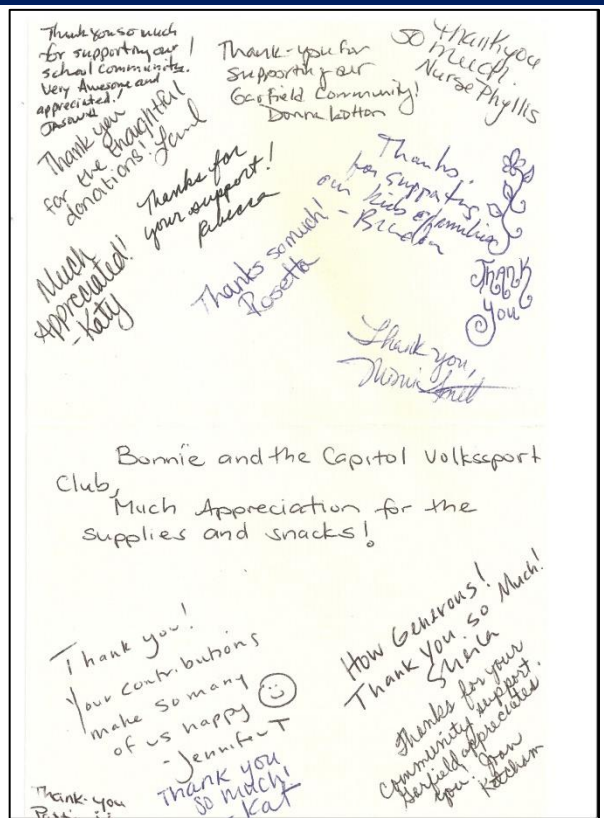 Thank you so much
for supporting our
school community.
Very Awesome and
appreciated!
Thank you
for the thoughtful
donations!
Thank-you for
supporting our
Garfield Community!
Donna
so
Thank you
much.
Nurse Phyllis
Thanks for
your support!
Rebecca
Thanks,
for supporting
our kids & families
- Brendon
Thank
You
Much
Appreciated!
- Katy
Thanks so much!
Rosetta
Thank you,
Bonnie and the Capitol Volkssport
Club,
Much Appreciation for the
supplies and snacks!
Thank you!
Your contributions
make so many
of us happy
- Jennifer T
How Generous!
Thank you so Much!
Sheila
Thanks for your
community support.
Garfield appreciates
you. Joan
Ketcham
Thank you
so much!
- Kat
Thank-you